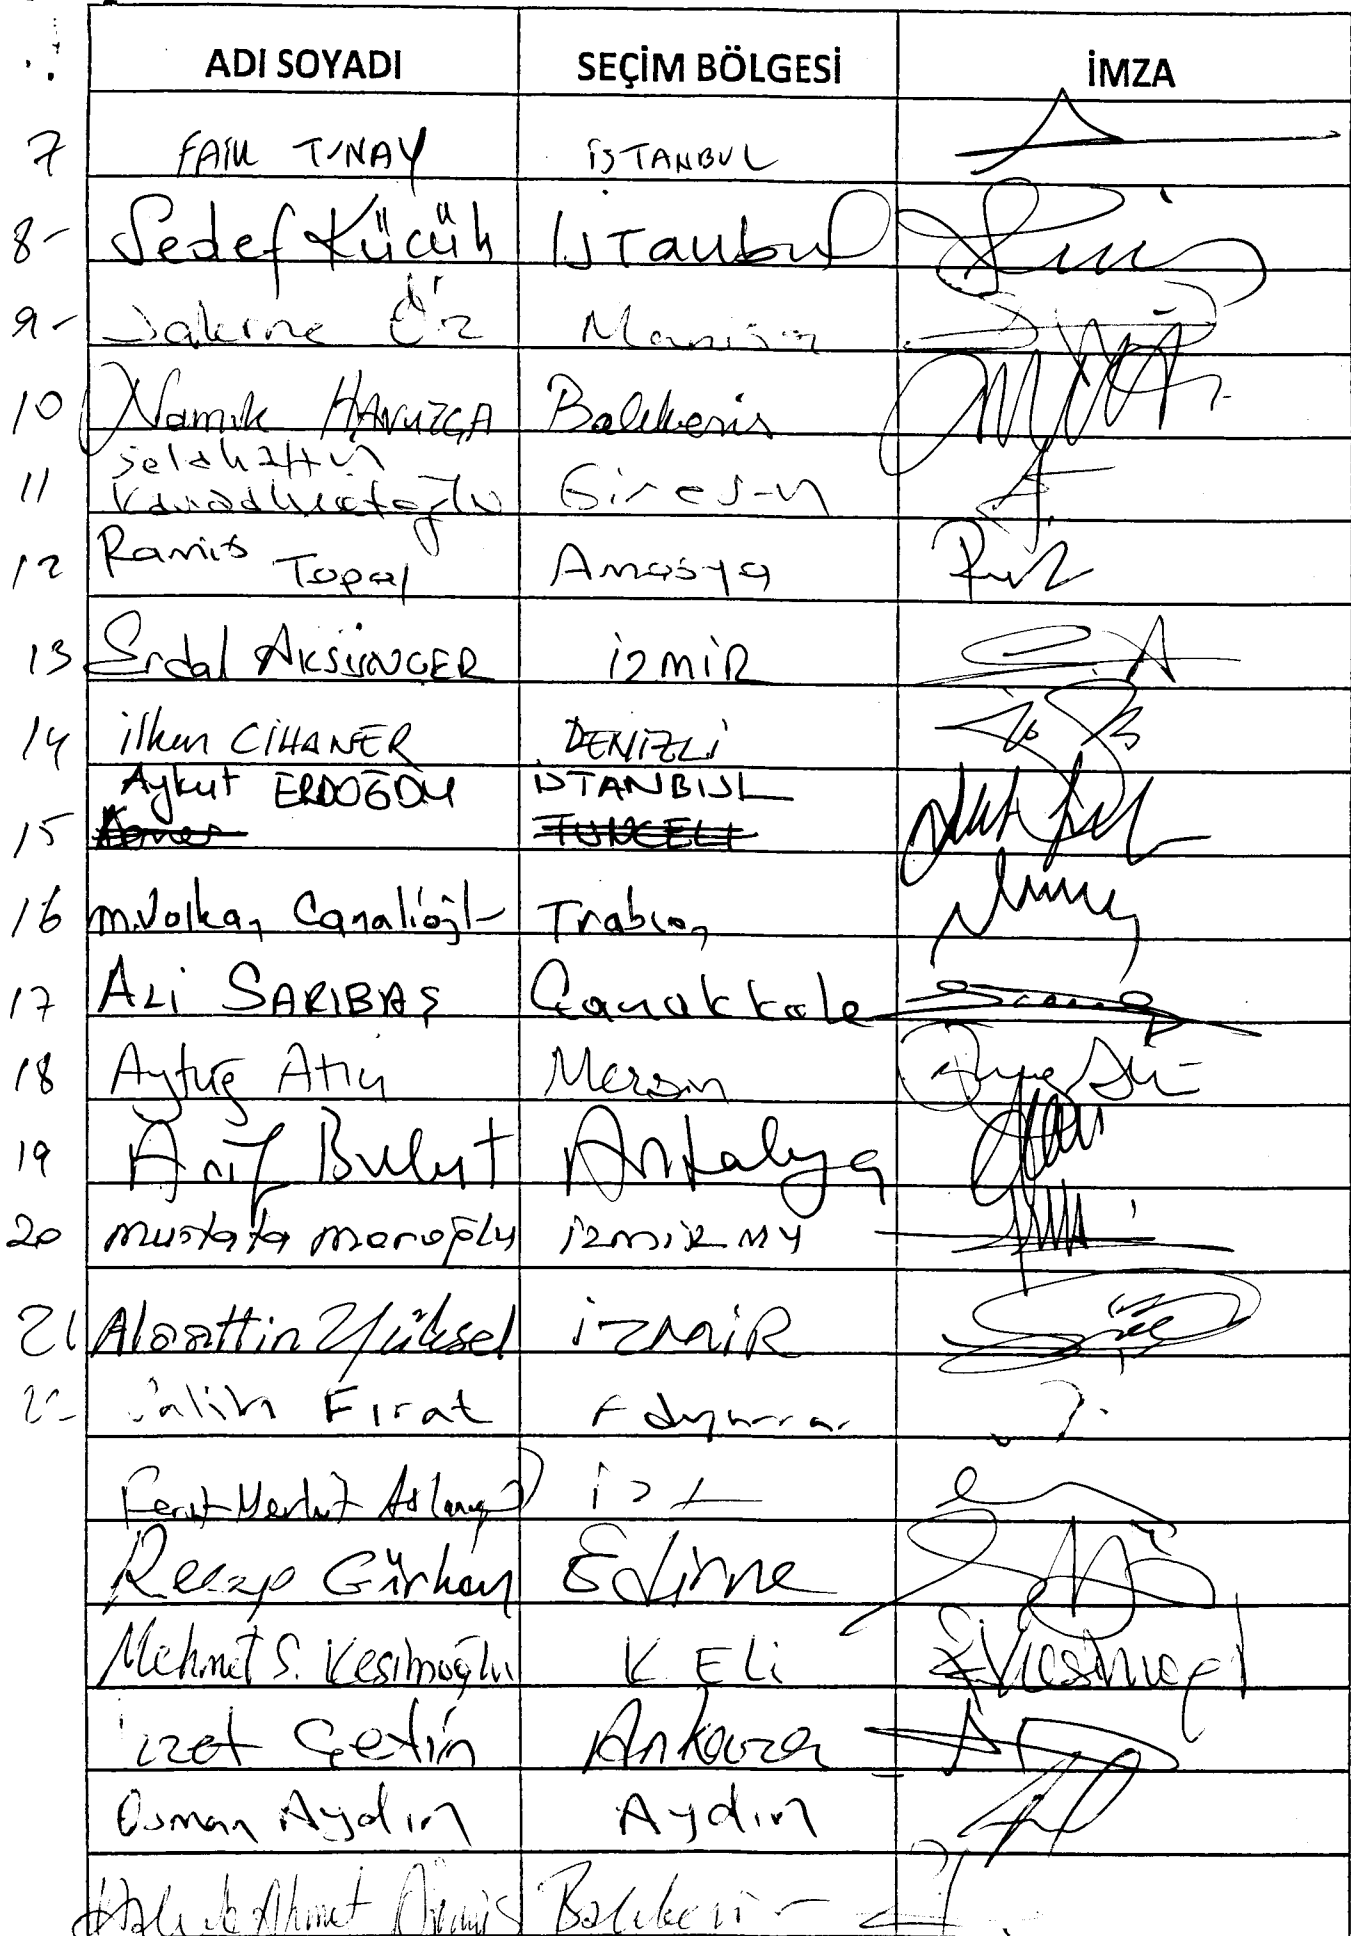 ADI SOYADI SEÇİM BÖLGESİ İMZA
7 FAİK TUNAY İSTANBUL
8- Sedef Küçük İstanbul
9- Sakine Öz Manisa
10 Namık HAVUTÇA Balıkesir
Selahattin
11 Karaahmetoğlu Giresun
12 Ramis Topal Amasya
13 Erdal AKSÜNGER İZMİR
14 İlhan CİHANER DENİZLİ
Aykut ERDOĞDU İSTANBUL
15 TUNCELİ
16 M.Volkan Canalioğlu Trabzon
17 ALİ SARIBAŞ Çanakkale
18 Aytuğ Atıcı Mersin
19 Arif Bulut Antalya
20 Mustafa Moroğlu İZMİR MV
21 Alaattin Yüksel İZMİR
22 Salih Fırat Adıyaman
Ferit Mevlüt Aslanoğlu İst
Recep Gürkan Edirne
Mehmet S. Kesimoğlu K ELİ
İzzet Çetin Ankara
Osman Aydın Aydın
Haluk Ahmet Balıkesir